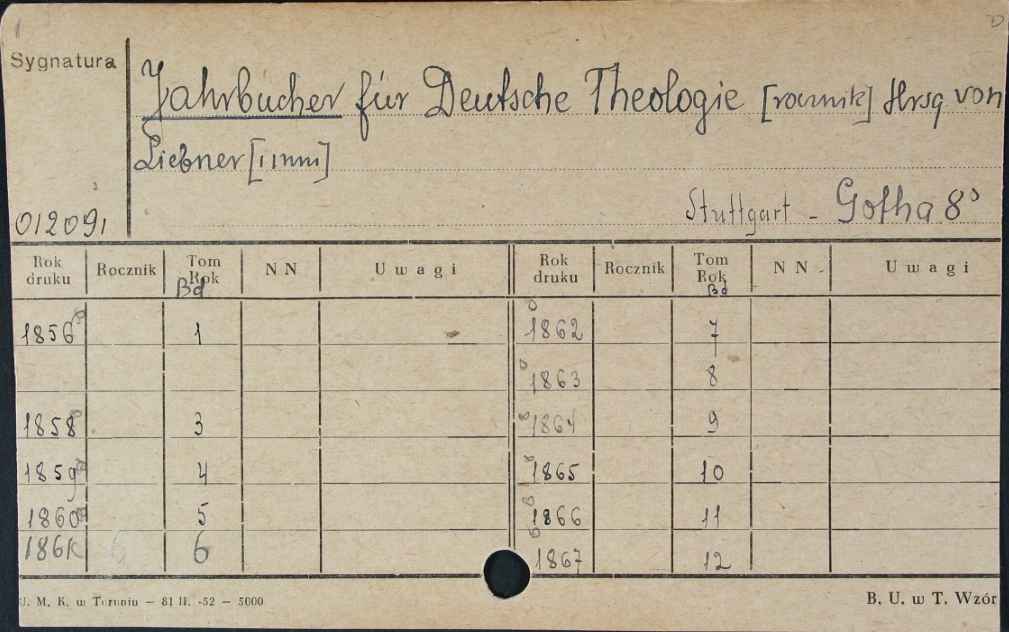 Sygnatura
Jahrbücher für Deutsche Theologie [rocznik] Hrsg von
Liebner [i inni]
012091
Stuttgart - Gotha 8°
Rok druku Rocznik Tom Rok Bd NN Uwagi Rok druku Rocznik Tom Rok Bd NN Uwagi
1856 1 1862 7
1863 8
1858 3 1864 9
1859 4 1865 10
1860 5 1866 11
1861 6 6 1867 12
U. M. K. w Toruniu — 81 II. -52 — 5000
B. U. w T. Wzór